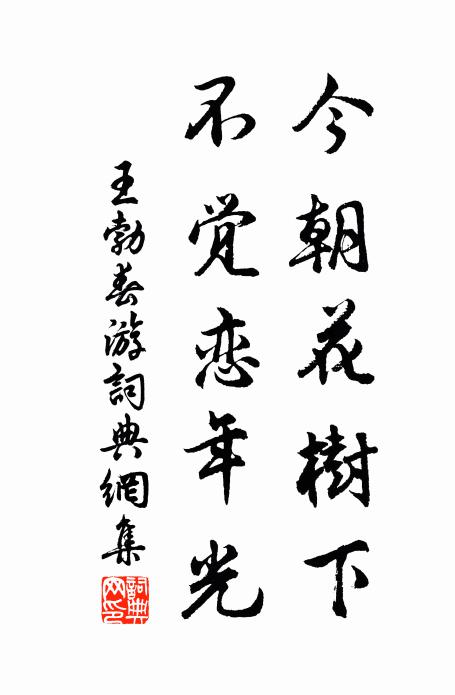 今朝花樹下
不觉恋年光
王勃春游詞典網集
詞典網印